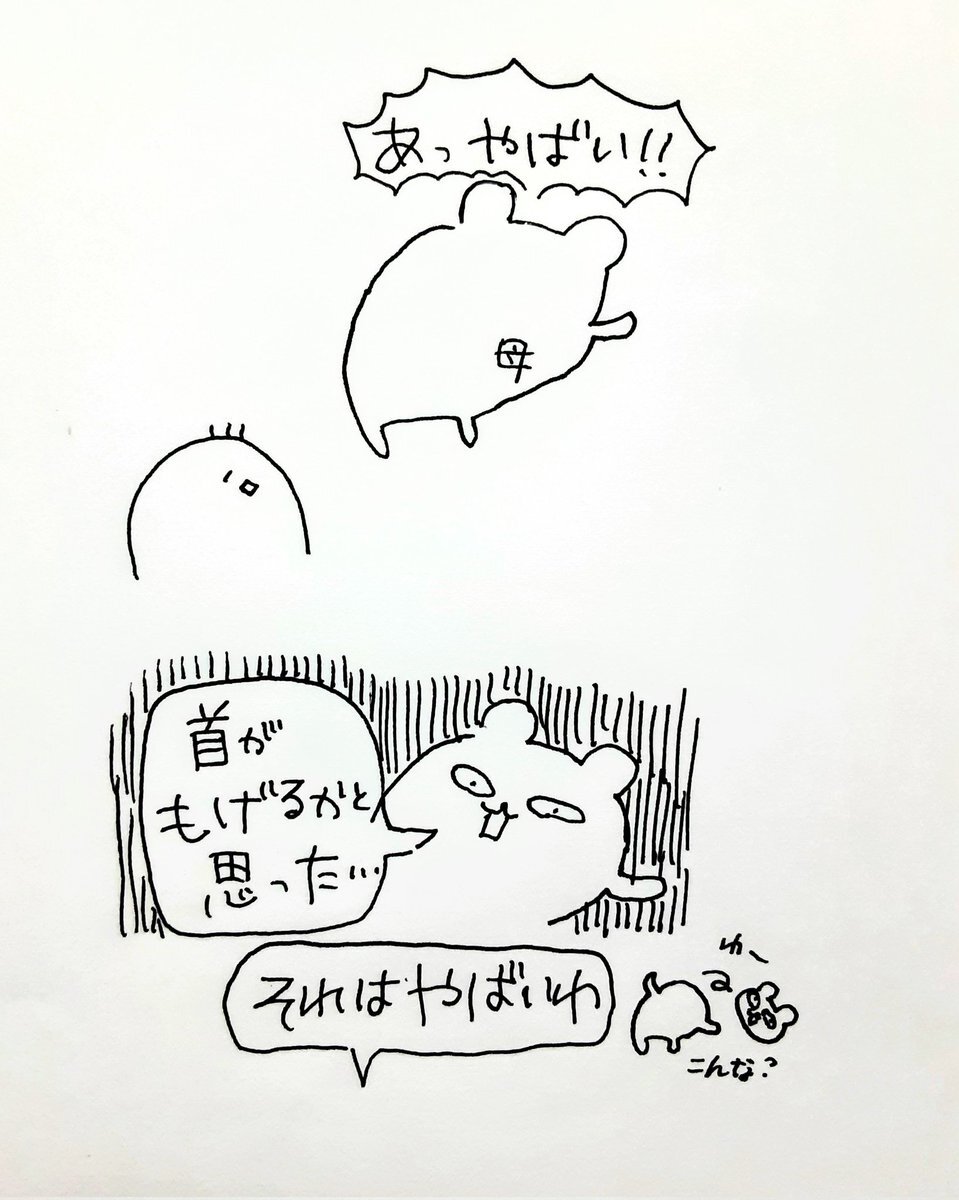 あっやばい!!
母
首が
もげるかと
思った…
それはやばいわ
わー
こんな?